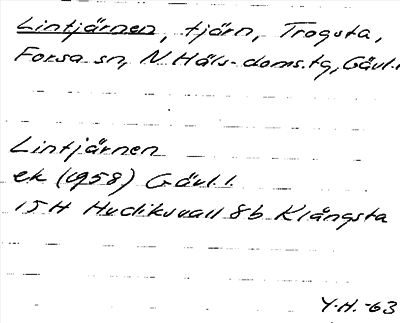 Lintjärnen, tjärn, Trogsta,
Forsa sn, N. Häls. doms.tg, Gävl.l.
Lintjärnen
ek (1958) Gävl.l.
15H Hudiksvall 8b Klångsta
Y.H.-63